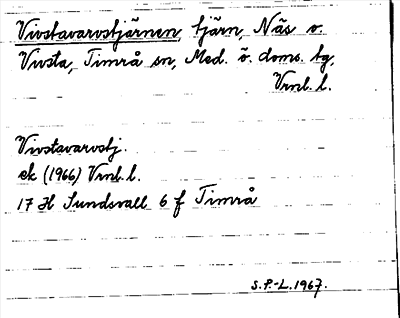 Vivstavarvstjärnen, tjärn, Näs o.
Vivsta, Timrå sn, Med. ö. doms. tg,
Vrnl. l.
Vivstavarvstj.
ek (1966) Vrnl. l.
17 H Sundsvall 6 f Timrå
S.P.-L. 1967.